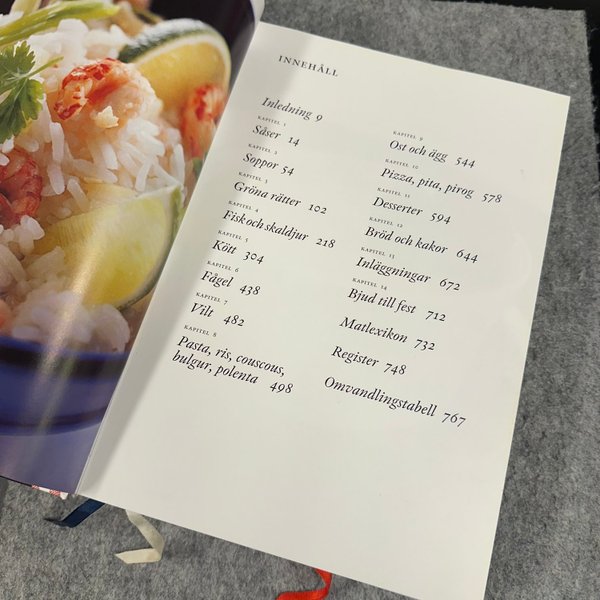 INNEHÅLL
Inledning 9
KAPITEL 1
Såser 14
KAPITEL 2
Soppor 54
KAPITEL 3
Gröna rätter 102
KAPITEL 4
Fisk och skaldjur 218
KAPITEL 5
Kött 304
KAPITEL 6
Fågel 438
KAPITEL 7
Vilt 482
KAPITEL 8
Pasta, ris, couscous,
bulgur, polenta 498
KAPITEL 9
Ost och ägg 544
KAPITEL 10
Pizza, pita, pirog 578
KAPITEL 11
Desserter 594
KAPITEL 12
Bröd och kakor 644
KAPITEL 13
Inläggningar 672
KAPITEL 14
Bjud till fest 712
Matlexikon 732
Register 748
Omvandlingstabell 767